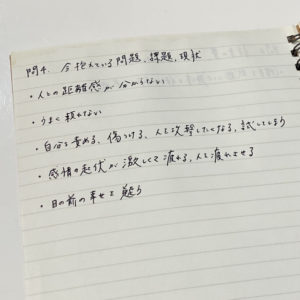 問4. 今抱えている問題、課題、現状
・人との距離感が分からない
・うまく頼れない
・自分を責める、傷つける、人を攻撃したくなる、試してしまう
・感情の起伏が激しくて疲れる、人を疲れさせる
・目の前の幸せを疑う